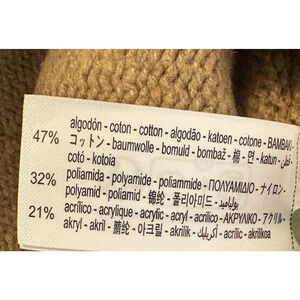 47% algodón - coton - cotton - algodão - katoen - cotone - BAMBAKI
コットン - baumwolle - bomuld - bombaž - 棉 - 면 - katun - قطن
cotó - kotoia
32% poliamida - polyamide - poliammide - ΠΟΛΥΑΜΙΔΙΟ - ナイロン
polyamid - poliamid - 锦纶 - 폴리아미드 - بولياميد
21% acrílico - acrylique - acrylic - acryl - acrilico - ΑΚΡΥΛΙΚΟ - アクリル
akryl - akril - 腈纶 - 아크릴 - akrilik - أكريليك - acrílic - akrilikoa